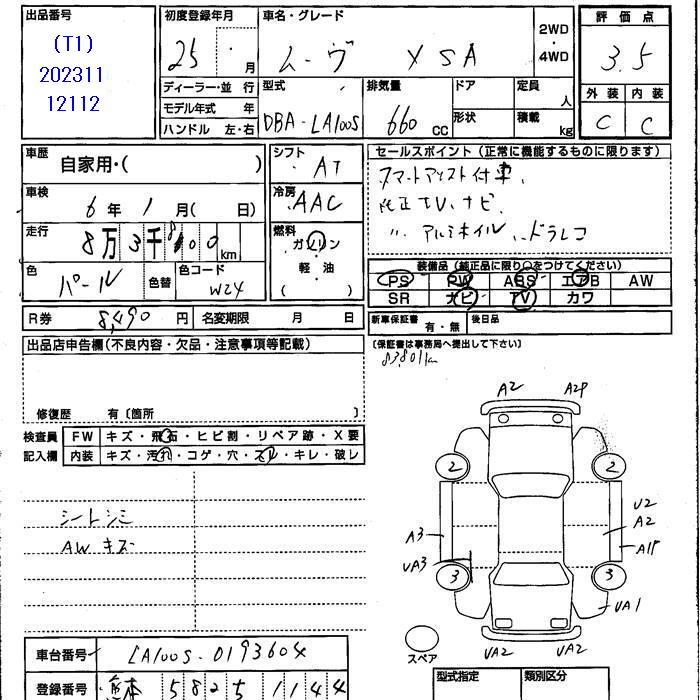 出品番号
(T1)
202311
12112
初度登録年月
25 ・ 月
車名・グレード
ムーヴ X SA
2WD
・
4WD
評価点
3.5
外装 内装
C C
ディーラー・並 行
モデル年式 年
ハンドル 左・右
型式
DBA-LA100S
排気量
660 CC
ドア
形状
定員
人
積載
kg
車歴
自家用・( )
車検
6年 1月( 日)
走行
8万3千 km
色
パール
色替
色コード
W24
シフト
AT
冷房
AAC
燃料
ガソリン
軽・油
( )
セールスポイント(正常に機能するものに限ります)
スマートアシスト付車、
純正TV、ナビ
〃 アルミホイル、ドラレコ
装備品(純正品に限り○をつけてください)
PS PW ABS エアB AW
SR ナビ TV カワ
R券 8,490 円 名変期限 月 日
新車保証書 有・無 後日品
(保証書は事務局へ提出して下さい)
83,801km
出品店申告欄(不良内容・欠品・注意事項等記載)
修復歴 有〔箇所 〕
検査員 FW キズ・飛石・ヒビ割・リペア跡・X要
記入欄 内装 キズ・汚れ・コゲ・穴・スレ・キレ・破レ
シートシミ
AW キズ
A2 A2P
2 2
U2
A2
A3 A1P
UA3
3 3
UA1
スペア
UA2 UA2
車台番号 LA100S-0193604
登録番号 熊本 582 5 1144
型式指定 類別区分